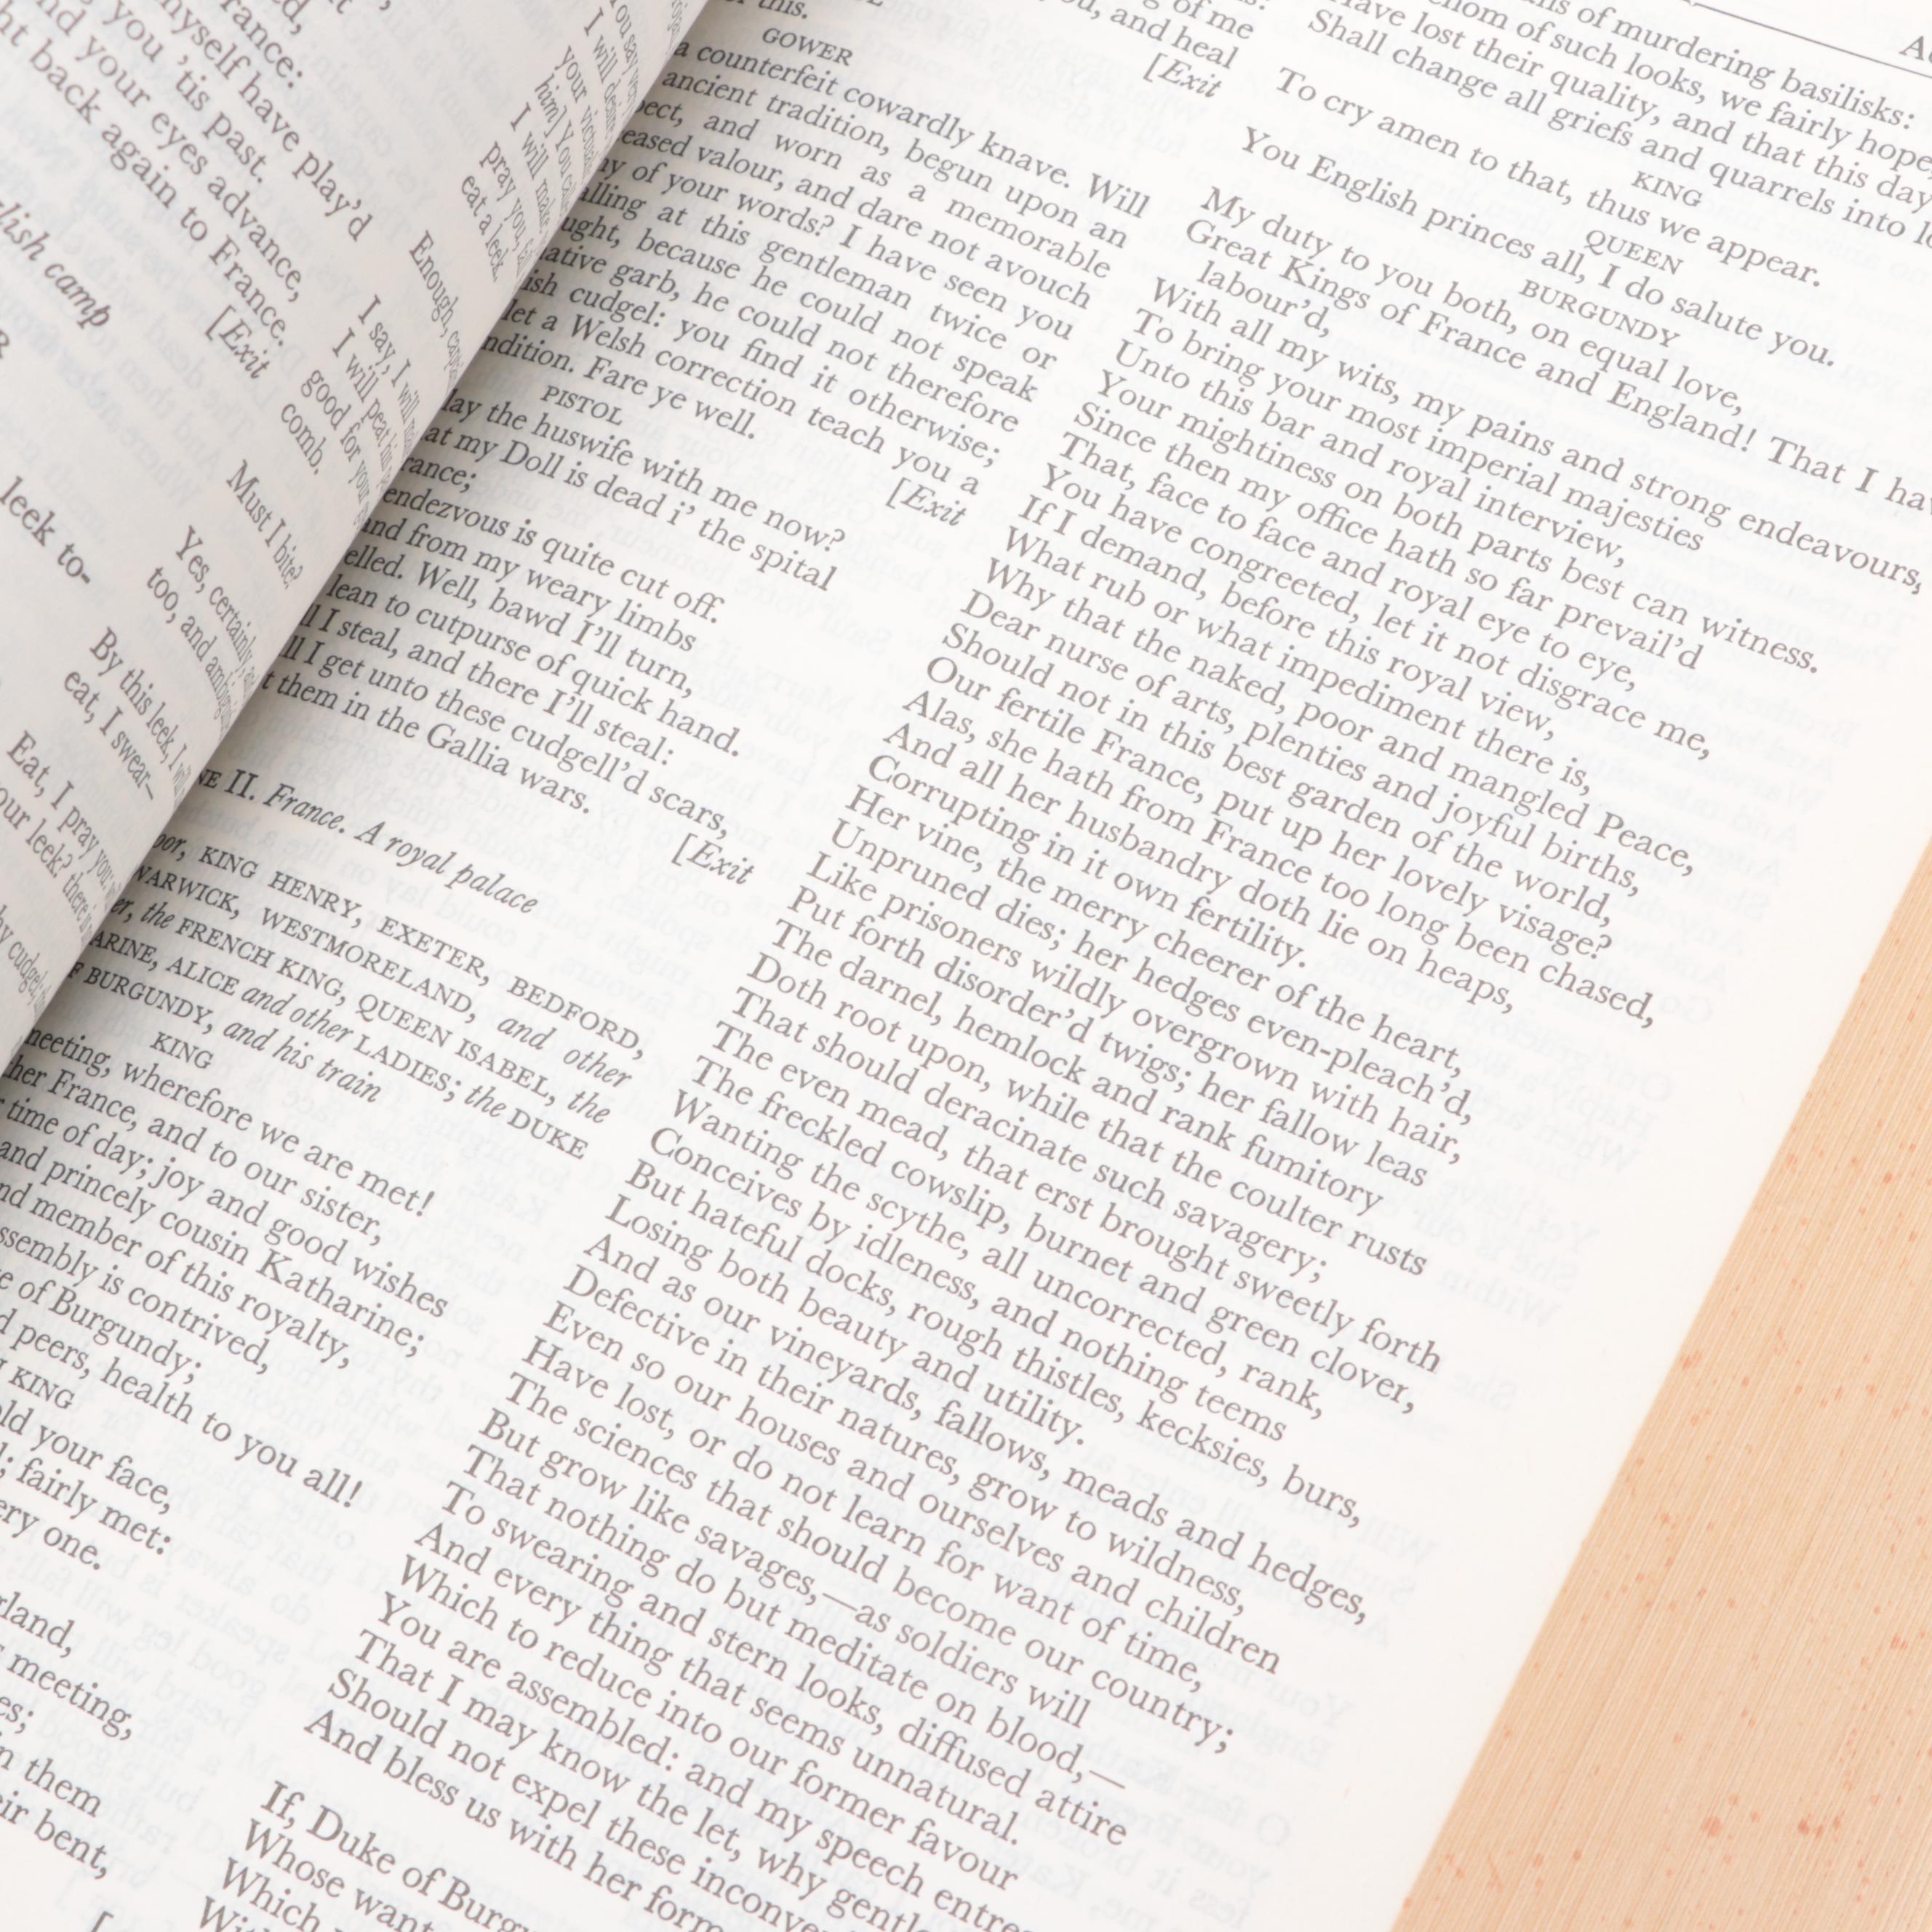 rance:
myself have play'd
you 'tis past.
nd your eyes advance,
ht back again to France.
[Exit
lish camp
R
leek to-
you say very
I will desire
your victuals
him] You called
I will make
pray you, fa
eat a leek.
Enough, capt
I say, I will m
I will peat his
good for your
comb.
Must I bite?
Yes, certainly, an
too, and ambiguit
By this leek, I wil
eat, I swear—
Eat, I pray you: wil
our leek? there is
by cudgel,
of this.
GOWER
a counterfeit cowardly knave. Will
ancient tradition, begun upon an
pect, and worn as a memorable
eased valour, and dare not avouch
ny of your words? I have seen you
alling at this gentleman twice or
ught, because he could not speak
native garb, he could not therefore
ish cudgel: you find it otherwise;
let a Welsh correction teach you a
ndition. Fare ye well.
[Exit
PISTOL
lay the huswife with me now?
at my Doll is dead i' the spital
rance;
endezvous is quite cut off.
and from my weary limbs
elled. Well, bawd I'll turn,
lean to cutpurse of quick hand.
ll I steal, and there I'll steal:
ll I get unto these cudgell'd scars,
t them in the Gallia wars.
[Exit
NE II. France. A royal palace
oor, KING HENRY, EXETER, BEDFORD,
WARWICK, WESTMORELAND, and other
er, the FRENCH KING, QUEEN ISABEL, the
ARINE, ALICE and other LADIES; the DUKE
F BURGUNDY, and his train
KING
meeting, wherefore we are met!
her France, and to our sister,
r time of day; joy and good wishes
and princely cousin Katharine;
nd member of this royalty,
ssembly is contrived,
e of Burgundy;
d peers, health to you all!
KING
old your face,
; fairly met:
ery one.
gland,
meeting,
es;
n them
eir bent,
ns of murdering basilisks:
nom of such looks, we fairly hope,
Have lost their quality, and that this day
Shall change all griefs and quarrels into lo
KING
To cry amen to that, thus we appear.
QUEEN
You English princes all, I do salute you.
BURGUNDY
My duty to you both, on equal love,
Great Kings of France and England! That I hav
labour'd,
With all my wits, my pains and strong endeavours,
To bring your most imperial majesties
Unto this bar and royal interview,
Your mightiness on both parts best can witness.
Since then my office hath so far prevail'd
That, face to face and royal eye to eye,
You have congreeted, let it not disgrace me,
If I demand, before this royal view,
What rub or what impediment there is,
Why that the naked, poor and mangled Peace,
Dear nurse of arts, plenties and joyful births,
Should not in this best garden of the world,
Our fertile France, put up her lovely visage?
Alas, she hath from France too long been chased,
And all her husbandry doth lie on heaps,
Corrupting in it own fertility.
Her vine, the merry cheerer of the heart,
Unpruned dies; her hedges even-pleach'd,
Like prisoners wildly overgrown with hair,
Put forth disorder'd twigs; her fallow leas
The darnel, hemlock and rank fumitory
Doth root upon, while that the coulter rusts
That should deracinate such savagery;
The even mead, that erst brought sweetly forth
The freckled cowslip, burnet and green clover,
Wanting the scythe, all uncorrected, rank,
Conceives by idleness, and nothing teems
But hateful docks, rough thistles, kecksies, burs,
Losing both beauty and utility.
And as our vineyards, fallows, meads and hedges,
Defective in their natures, grow to wildness,
Even so our houses and ourselves and children
Have lost, or do not learn for want of time,
The sciences that should become our country;
But grow like savages,—as soldiers will
That nothing do but meditate on blood,—
To swearing and stern looks, diffused attire
And every thing that seems unnatural.
Which to reduce into our former favour
You are assembled: and my speech entre
That I may know the let, why gentl
Should not expel these inconve
And bless us with her form
If, Duke of Burgu
Whose want
Which